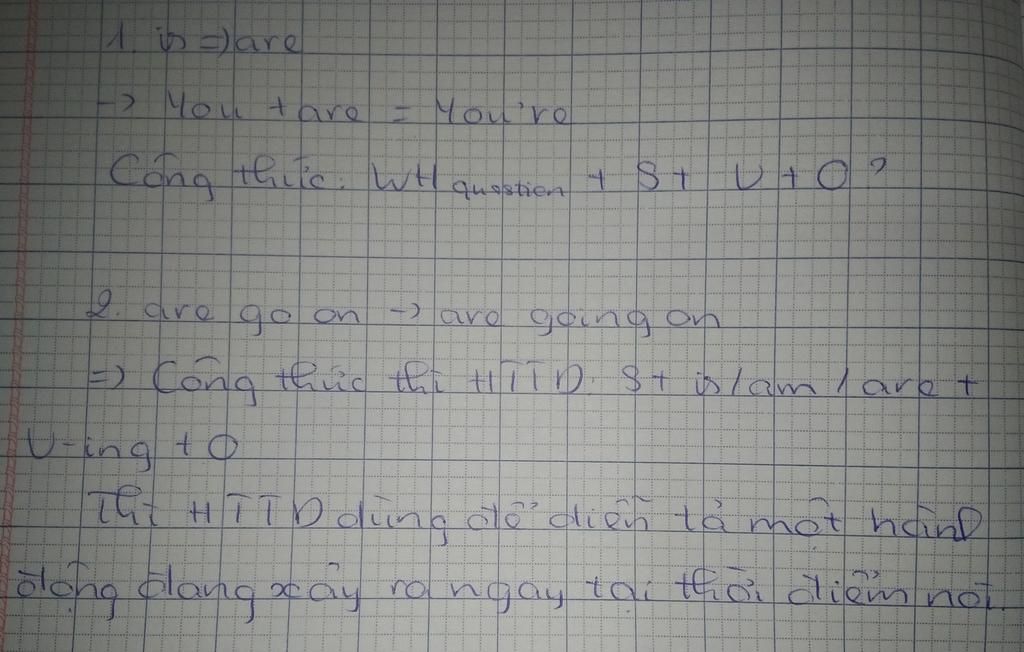 1. is => are
-> You + are = You're
Công thức: WH question + S + V + O?
2. are go on -> are going on
=> Công thức thì HTTD: S + is/am/are +
V-ing + O
Thì HTTD dùng để diễn tả một hành
động đang xảy ra ngay tại thời điểm nói.